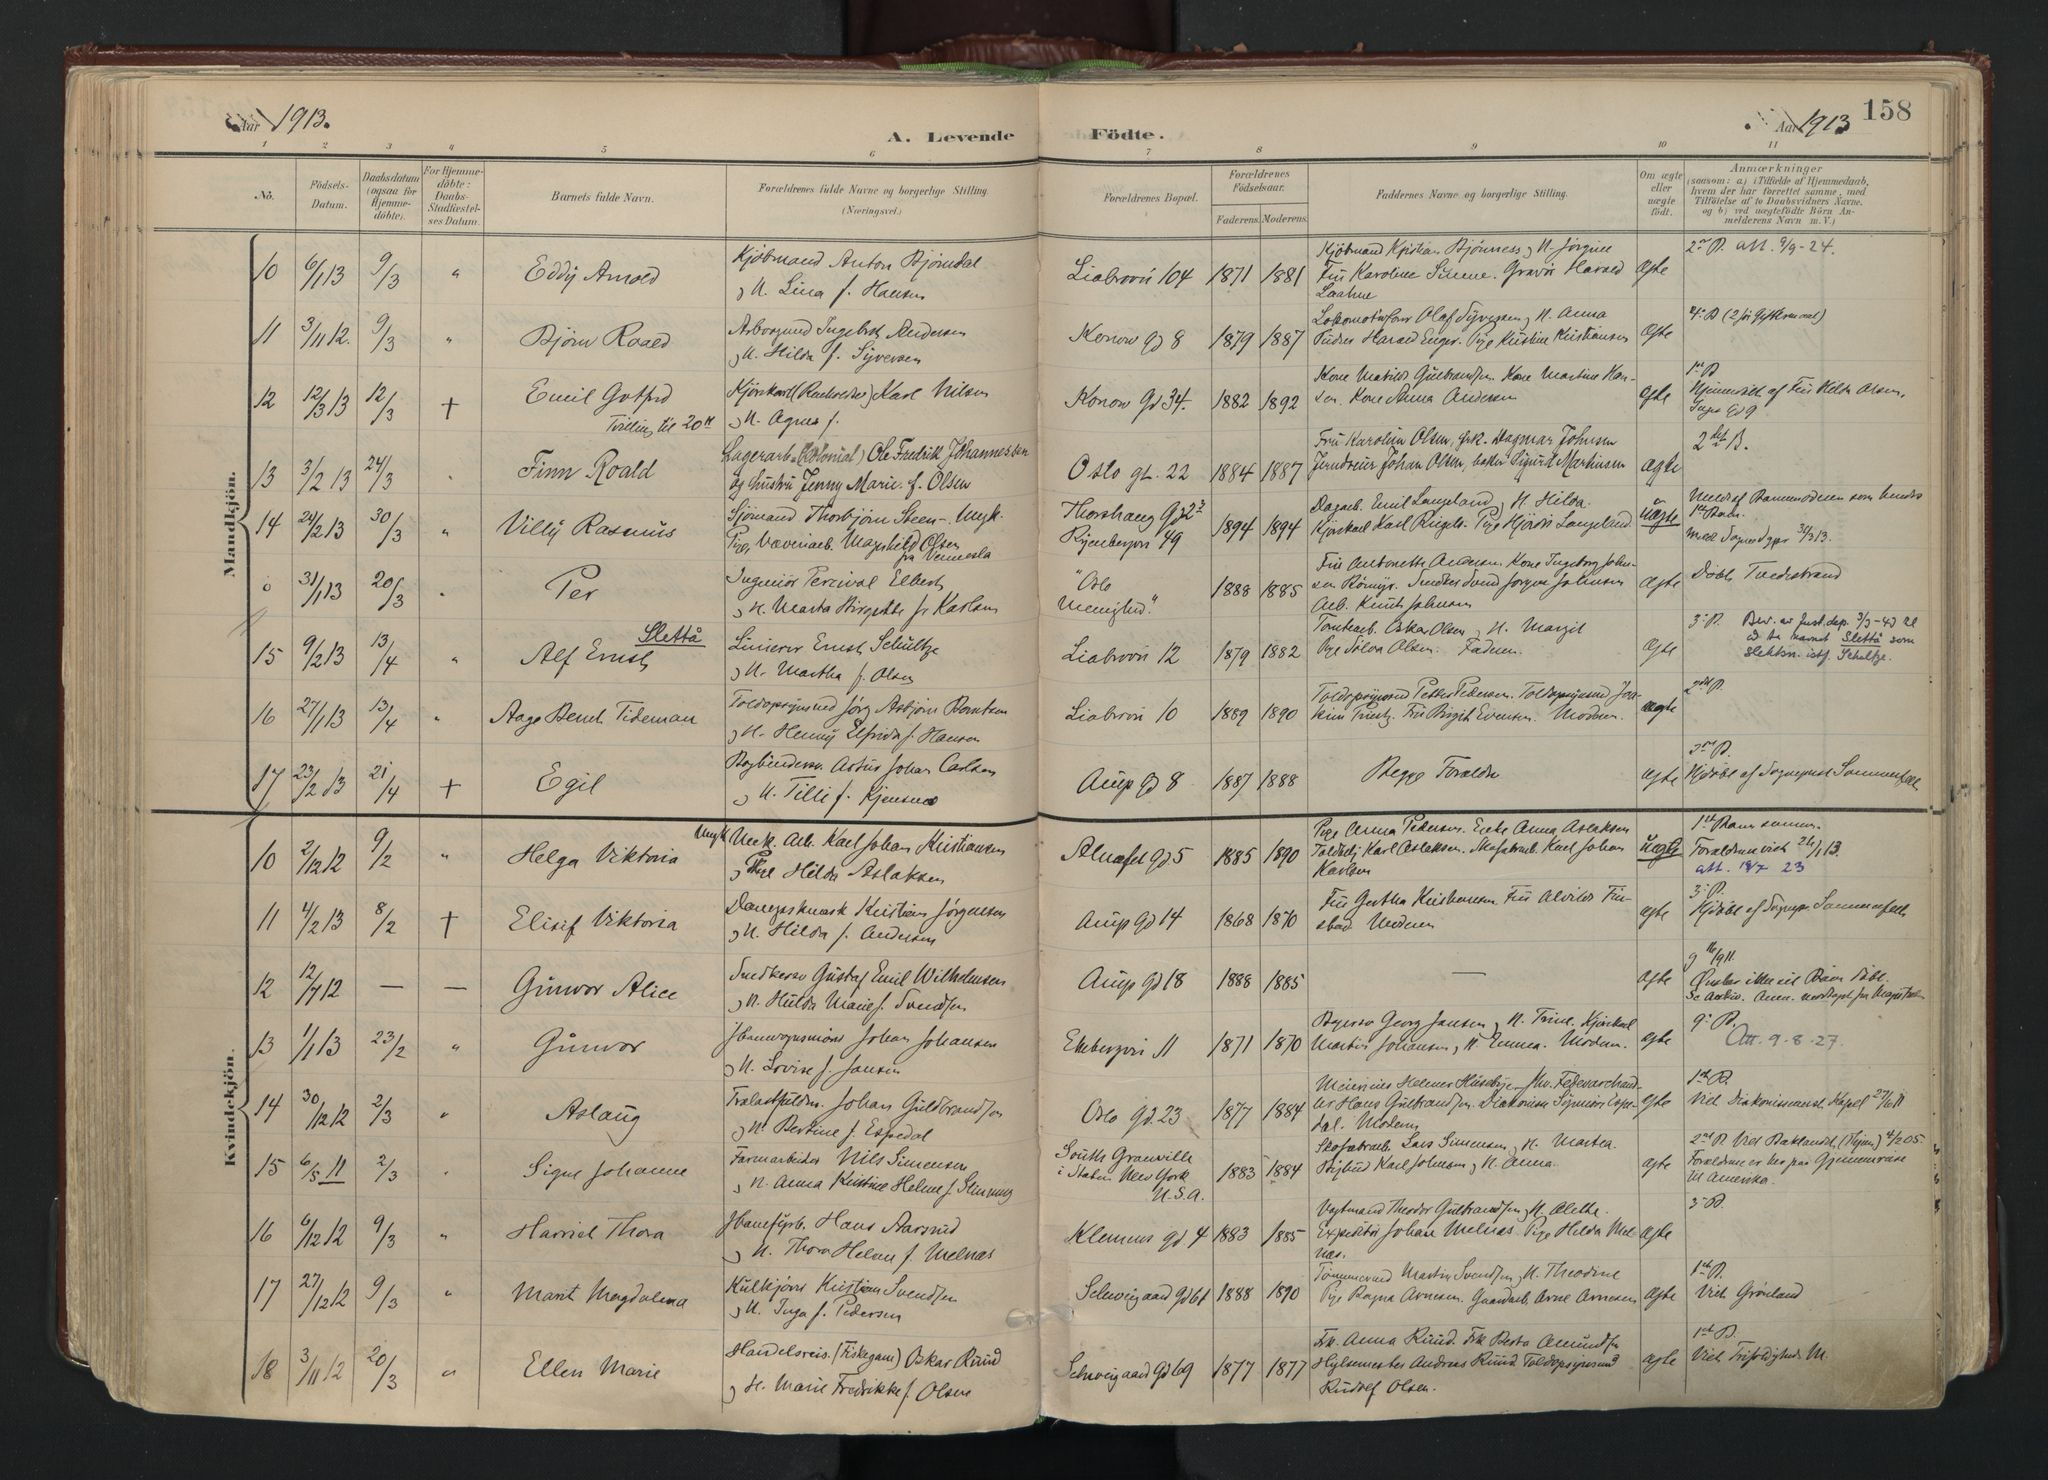 Aar 1913.
A. Levende
Födte.
Aar 1913
158
1 2 3 4 5 6 7 8 9 10 11
No.
Födsels-
Datum.
Daabsdatum
(ogsaa for
Hjemme-
döbte).
For Hjemme-
döbte:
Daabs-
Stadfæstel-
ses Datum.
Barnets fulde Navn.
Forældrenes fulde Navne og borgerlige Stilling.
(Næringsvei.)
Forældrenes Bopæl.
Forældrenes
Födselsaar.
Faderens. Moderens.
Faddernes Navne og borgerlige Stilling.
Om ægte
eller
uægte
födt.
Anmærkninger
(saasom: a) i Tilfælde af Hjemmedaab,
hvem der har forrettet samme, med
Tilföielse af to Daabsvidners Navne,
og b) ved uægtefödte Börn An-
melderens Navn m. V.)
Mandkjön.
10 6/1 13 9/3 " Eddy Arnold
Kjöbmand Anton Bjørndal
og H. Lina f. Hansen
Liabrovei 104 1871 1881
Kjöbmand Kristian Bjönness og H. Jörgine
Fru Karoline Simene. Gravör Harald
Laahne
Ægte
2n B. att. 9/9-24.
11 3/11 12. 9/3 " Bjørn Roald
Arborgmd Ingebrt Andersen
og H. Hilda f. Syversen
Konow gd 8 1879 1887
Olaf Syversen og H. Anna
Harald Enger. Pige Kristine Kristiansen
Ægte
4. B
12 12/3 13 12/3 + Emil Gotfrd
Tvilling til 20
Kjörekarl Karl Nilsen
og H. Agnes f.
Konow Gd 34. 1882 1892
Kone Matilde Gulbrandsen. Kone Martine Han-
sen. Kone Anna Andersen
Ægte
1st B
Hjemmedöbt af Fru Hilda Olsen,
Gd 9
13 3/2 13 24/3 " Finn Roald
Lagerarb. (Kolonial) Ole Fredrik Johannessen
og hustru Jenny Marie f. Olsen
Oslo gt. 22 1884 1887
Fru Karoline Olsen, frk. Dagmar Johnsen
Jerndreier Johan Olsen, Sigurd Martinsen
ægte
2det B.
14 24/2 13 30/3 " Villy Rasmus
Sjömand Thorbjörn Steen - Ungk.
Pige, Væveriarb. Magnhild Olsen
fra Vennesla
Thorshaug Gd 2
Ryenbergvei 49
1894 1894
Dagarb. Emil Langeland og H. Hilda.
Kjörekarl Karl Pige Hjørdis Langeland
Uægte
Meldt af Barnemoderen som hendes
1ste Barn.
30/3 13.
0 31/1 13 20/3 " Per
Ingeniör Percival Elbert
og H. Marta Birgitte f. Karlsen
"Oslo
Menighed".
1888 1885
Fru Antonette Andersen Kone Ingeborg John-
sen Svend Jörgen Johnsen
Arb. Knut Johnsen
Ægte
Döbt Tvedestrand
15 9/2 13 13/4 " Alf Ernst Slettå
Linierer Ernst Schultze
og H. Martha f. Olsen
Liabrovei 12 1879 1882
Tomtearb. Oskar Olsen og H. Margit
Pige Solva Olsen. Faderen.
Ægte
3. B. Bev. av Just. dep. 3/3-43 til
å ta navnet Slettå som
slektsn. istf. Schultze.
16 27/1 13 13/4 " Aage Bendt Tideman
Toldopsynsmd Jörg. Asbjörn Berntsen
og H. Henny Elfrida f. Hansen
Liabrovei 10 1889 1890
Toldopsynsmd Petter Pedersen. Toldopsynsmd Joa-
kim Frue Birgit Evensen. Moderen.
ægte
2det B.
17 23/2 13 21/4 + Egil
Bogbinderm. Artur Johan Carlsen
og H. Tilli f. Kjensmo
Arups Gd 8 1887 1888
Begge Forældre
ægte
2n B.
Hjdöbt af Sognepræst Sommerfelt
Kvindekjön.
10 2/12 12 9/2 " Helga Viktoria
Ungk. Arb. Karl Johan Kristiansen
og Pige Hilda Aslaksen
Alnafet gd 5 1885 1890
Pige Anna Pedersen. Enke Anna Aslaksen
Karl Aslaksen. Skofabrarb. Karl Johan
Karlsen
Uægte
1st Barn sammen.
Forældrene viet 26/1 13.
att. 18/7 23
11 4/2 13 8/2 + Elisif Viktoria
Kristian Jörgensen
og H. Hilda f. Andersen
Arups gd 14 1868 1870
Fru Gertha Kristiansen. Fru Alvilde Fin-
stad. Moderen
ægte
3. B.
Hjdöbt af Sognepr. Sommerfelt
12 12/7 12 — — Gunvor Alice
Snedkersv Gustaf Emil Wilhelmsen
og H. Hulda Marie f. Svendsen
Arups gd 18 1888 1885
—
ægte
g. 16/9 11.
Önsker ikke sit Barn döbt.
13 1/1 13 23/2 " Gunvor
Johan Johansen
og H. Lovise f. Jansen
Ekebergvei 11 1871 1870
Bagersv Georg Jansen og H. Trine. Kjörekarl
Martin Johansen og H. Emma. Moderen.
ægte
9. B.
Att. 9.8.27.
14 30/12 12 2/3 " Aslaug
Trælastfuldm. Johan Guldbrandsen
og H. Bertine f. Espedal
Oslo gd. 23 1877 1884
Helmer Huseby. Fedevarehand-
ler Hans Gulbrandsen. Diakonisse Sigmor Espe-
dal. Moderen
ægte
1st B.
Viet Diakonissehusets Kapel 27/6 11
15 6/5 11 2/3 " Signe Johanne
Farmarbeider Nils Simensen
og H. Anna Kristine Helene f. Simensen
South Granville
i Staten New York
U.S.A.
1883 1884
Skofabrarb. Lars Simensen og H. Martea
Karl Johnsen og H. Anna.
ægte
2n B. Viet Baklandet (Thjem) 4/2 05.
Forældrene er her paa Gjennemreise
til Amerika.
16 6/12 12 9/3 " Harriet Thora
Hans Aasrud
og H. Thora Helene f. Melnæs
Klemens gd 4 1883 1885
Vogtmand Theodor Gulbrandsen og H. Alette.
Expeditör Johan Melnæs. Pige Hilda Mel-
næs.
Ægte
3. B.
17 27/12 12 9/3 " Marit Magdalena
Kulkjörer Kristian Svendsen
og H. Inga f. Pedersen
Schweigaard gd 61 1888 1890
Tömmermd Martin Svendsen og H. Theodine
Pige Ragna Arnesen. Arne Arnesen
Ægte
1st B.
Viet Grönland
18 3/11 12 20/3 " Ellen Marie
Handelsreis. Oskar Ruud
og H. Marie Fredrikke f. Olsen
Schweigaard gd 69 1877 1877
Frk. Anna Ruud. Frk Berta Amundsen
Hylsemester Andreas Ruud. Toldopsynsmd
Rudolf Olsen.
ægte
1st B.
Viet Trefoldigheds M.